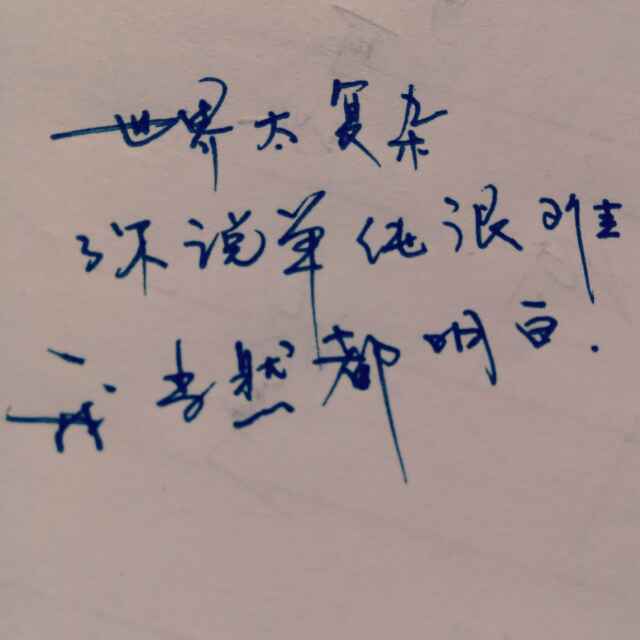 世界太复杂
你说单纯很难
我当然都明白.